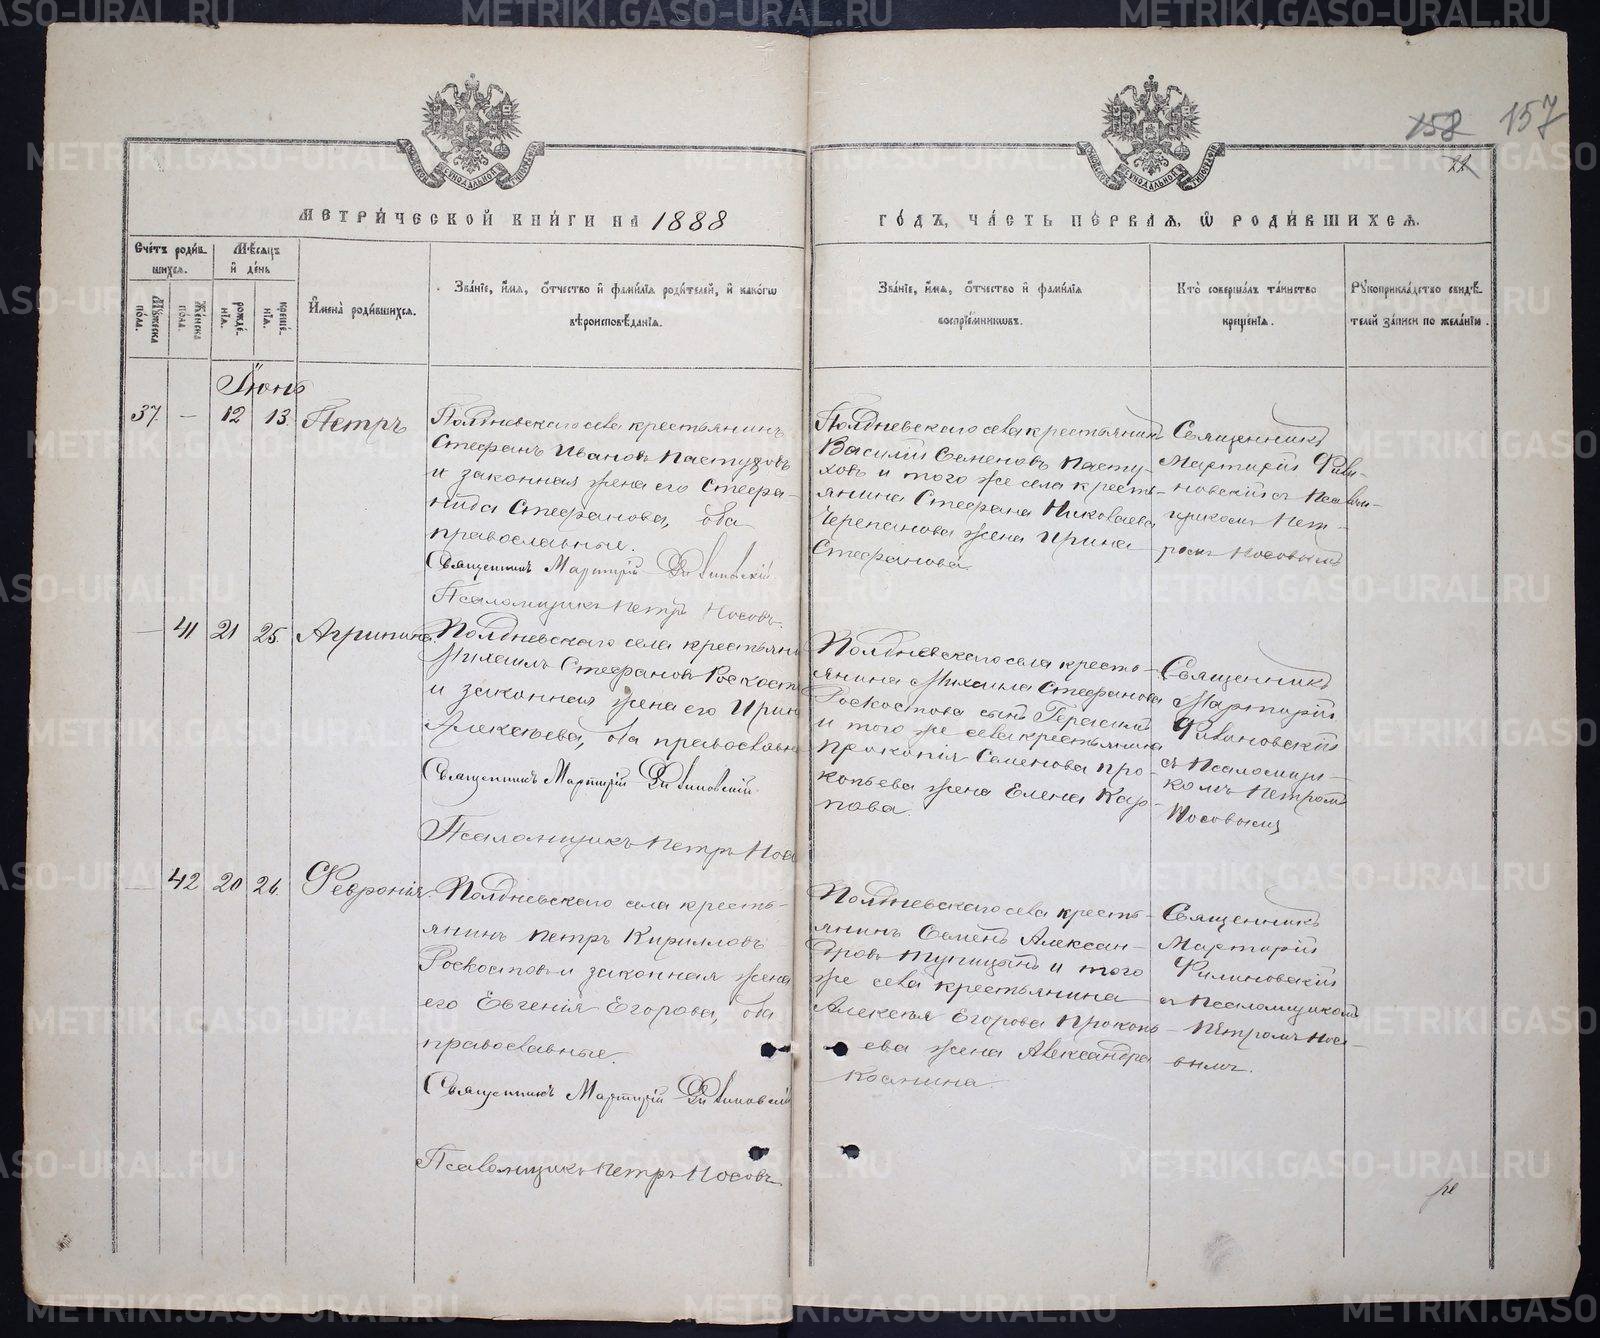 158 157
МЕТРИ́ЧЕСКОЙ КНИ́ГИ НА 1888 ГО́ДЪ, ЧА́СТЬ ПЕ́РВАЯ, Ѡ РОДИ́ВШИХСЯ.
Сче́тъ роди́в-
шихся.
Мꙋ́жеска
по́ла.
Же́нска
по́ла.
Мѣ́сяцъ
и҆ де́нь
рожде́-
нїя.
креще́-
нїя.
И҆мена̀ роди́вшихся.
Зва́нїе, и҆́мя, ѻ҆́тчество и҆ фами́лїя роди́телей, и҆ како́гѡ
вѣроисповѣ́данїя.
Зва́нїе, и҆́мя, ѻ҆́тчество и҆ фами́лїя
воспрїе́мниковъ.
Кто̀ соверша́лъ та́инство
креще́нїя.
Рꙋкоприкла́дство свидѣ́-
телей за́писи по жела́нїю.
Іюнь
37. — 12 13. Петръ
Полдневскаго села крестьянинъ
Стефанъ Ивановъ Пастуховъ
и законная жена его Стефа-
нида Стефанова, оба
православные.
Священникъ Мартирій Филиновскій
Псаломщикъ Петръ Носовъ.
Полдневскаго села крестьянинъ
Василій Семеновъ Пасту-
ховъ и того же села кресть-
янина Стефана Николаева
Черепанова жена Ирина
Стефанова.
Священникъ
Мартирій Фили-
новскій съ Псалом-
щикомъ Пет-
ромъ Носовымъ
— 41 21 25. Агрипина.
Полдневскаго села крестьяни
Михаилъ Стефановъ Роскост
и законная жена его Ирин
Алексѣева, оба православн
Священникъ Мартирій Филиновскій.
Псаломщикъ Петръ Носо
Полдневскаго села кресть-
янина Михаила Стефанова
Роскостова сынъ Герасимъ
и того же села крестьянина
Прокопія Семенова Про-
копьева жена Елена Кар-
пова.
Священникъ
Мартирій
Филиновскій
съ Псаломщи-
комъ Петромъ
Носовымъ
— 42 20 26. Февронія.
Полдневскаго села кресть-
янинъ Петръ Кирилловъ
Роскостовъ и законная жена
его Евгенія Егорова, оба
православные.
Священникъ Мартирій Филиновскій
Псаломщикъ Петръ Носовъ
Полдневскаго села кресть-
янинъ Семенъ Алексан-
дровъ Тупицынъ и того
же села крестьянина
Алексѣя Егорова Прокопь-
ева жена Александра
Космина.
Священникъ
Мартирій
Филиновскій
съ Псаломщикомъ
Петромъ Носо-
вымъ.